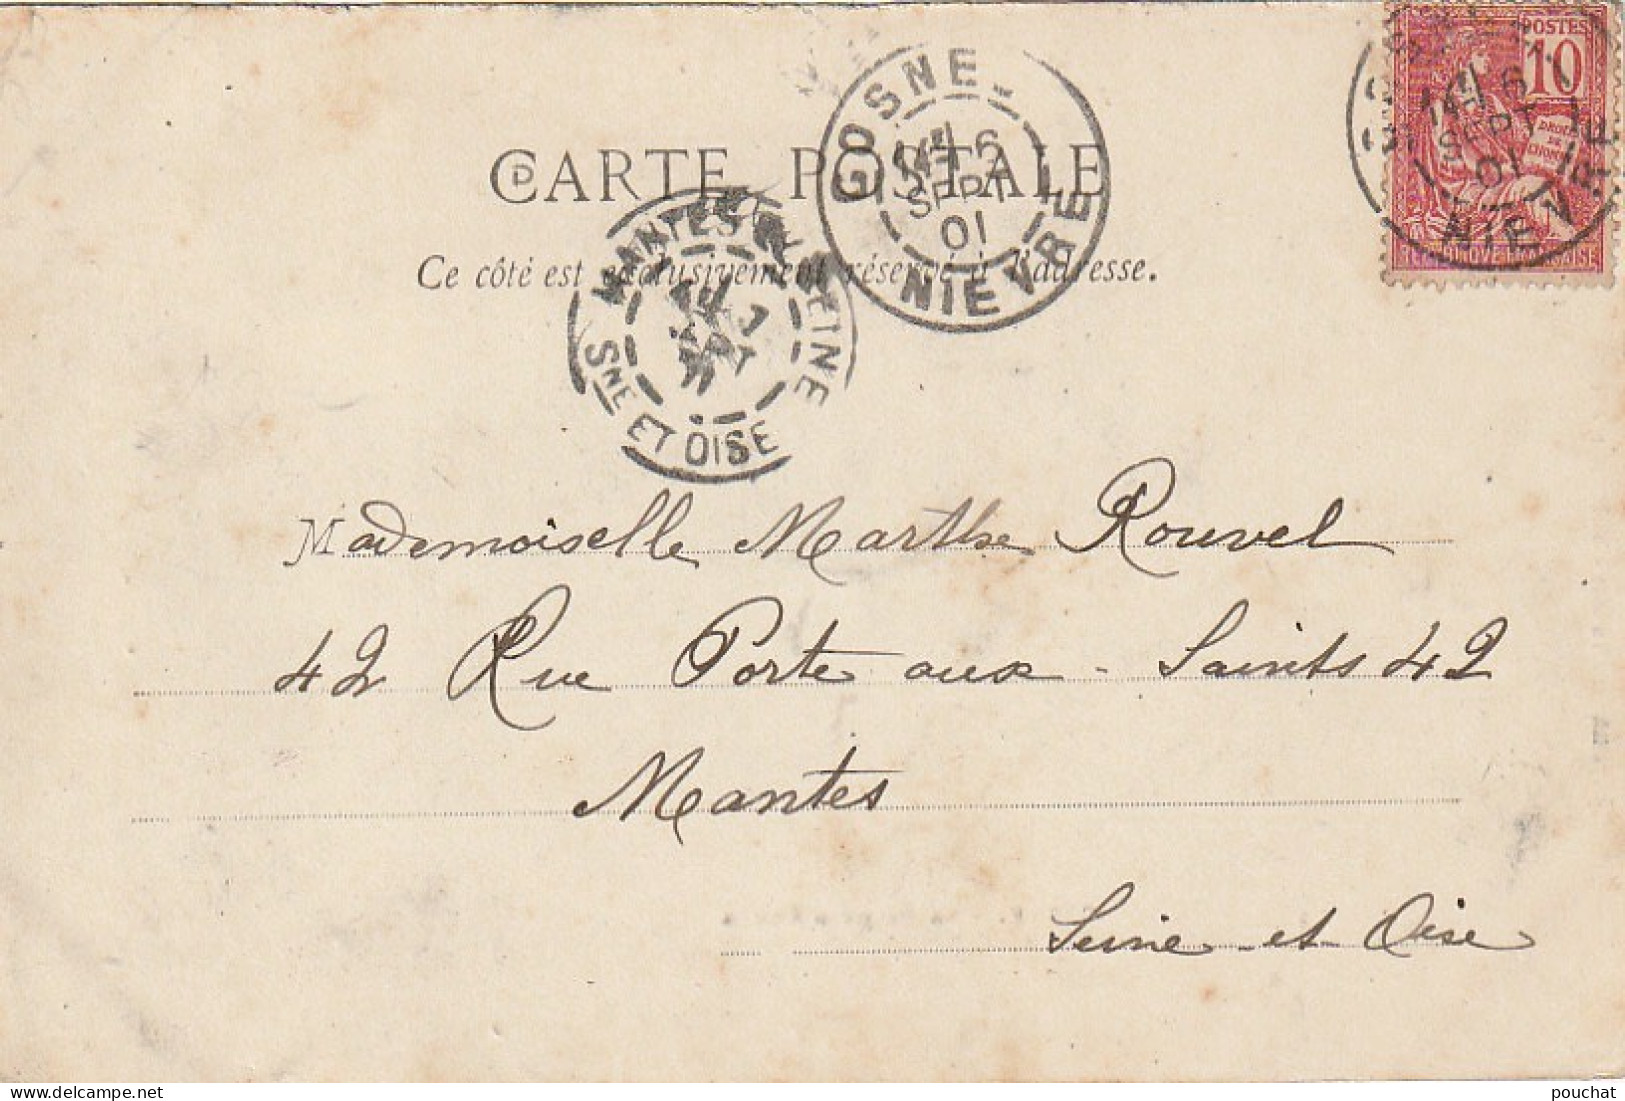 POSTES
10
DROITS
DE
L'HOMME
COSNE
6
SEPT
01
NIEVRE
COSNE
6
SEPT
01
NIEVRE
CARTE POSTALE
Ce côté est exclusivement réservé à l'adresse.
MANTES
SEINE
SNE ET OISE
Mademoiselle Marthe Rouvel
42 Rue Porte aux - Saints 42
Mantes
Seine - et - Oise
delcampe.net
pouchat